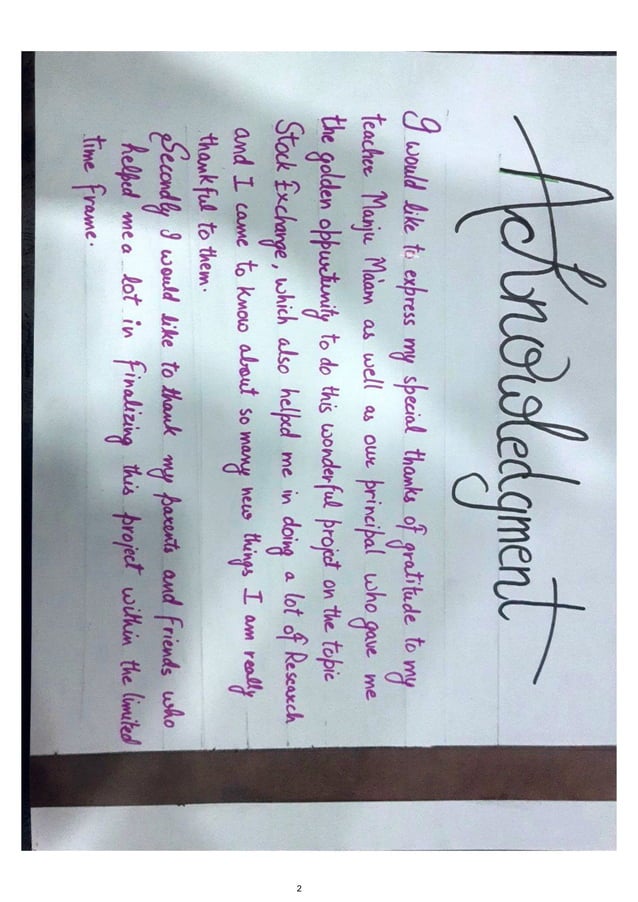 Acknowledgment
I would like to express my special thanks of gratitude to my
teacher Manju Ma'am as well as our principal who gave me
the golden oppurtunity to do this wonderful project on the topic
Stock Exchange, which also helped me in doing a lot of Research
and I came to know about so many new things I am really
thankful to them.
Secondly I would like to thank my parents and friends who
helped me a lot in finalizing this project within the limited
time frame.
2